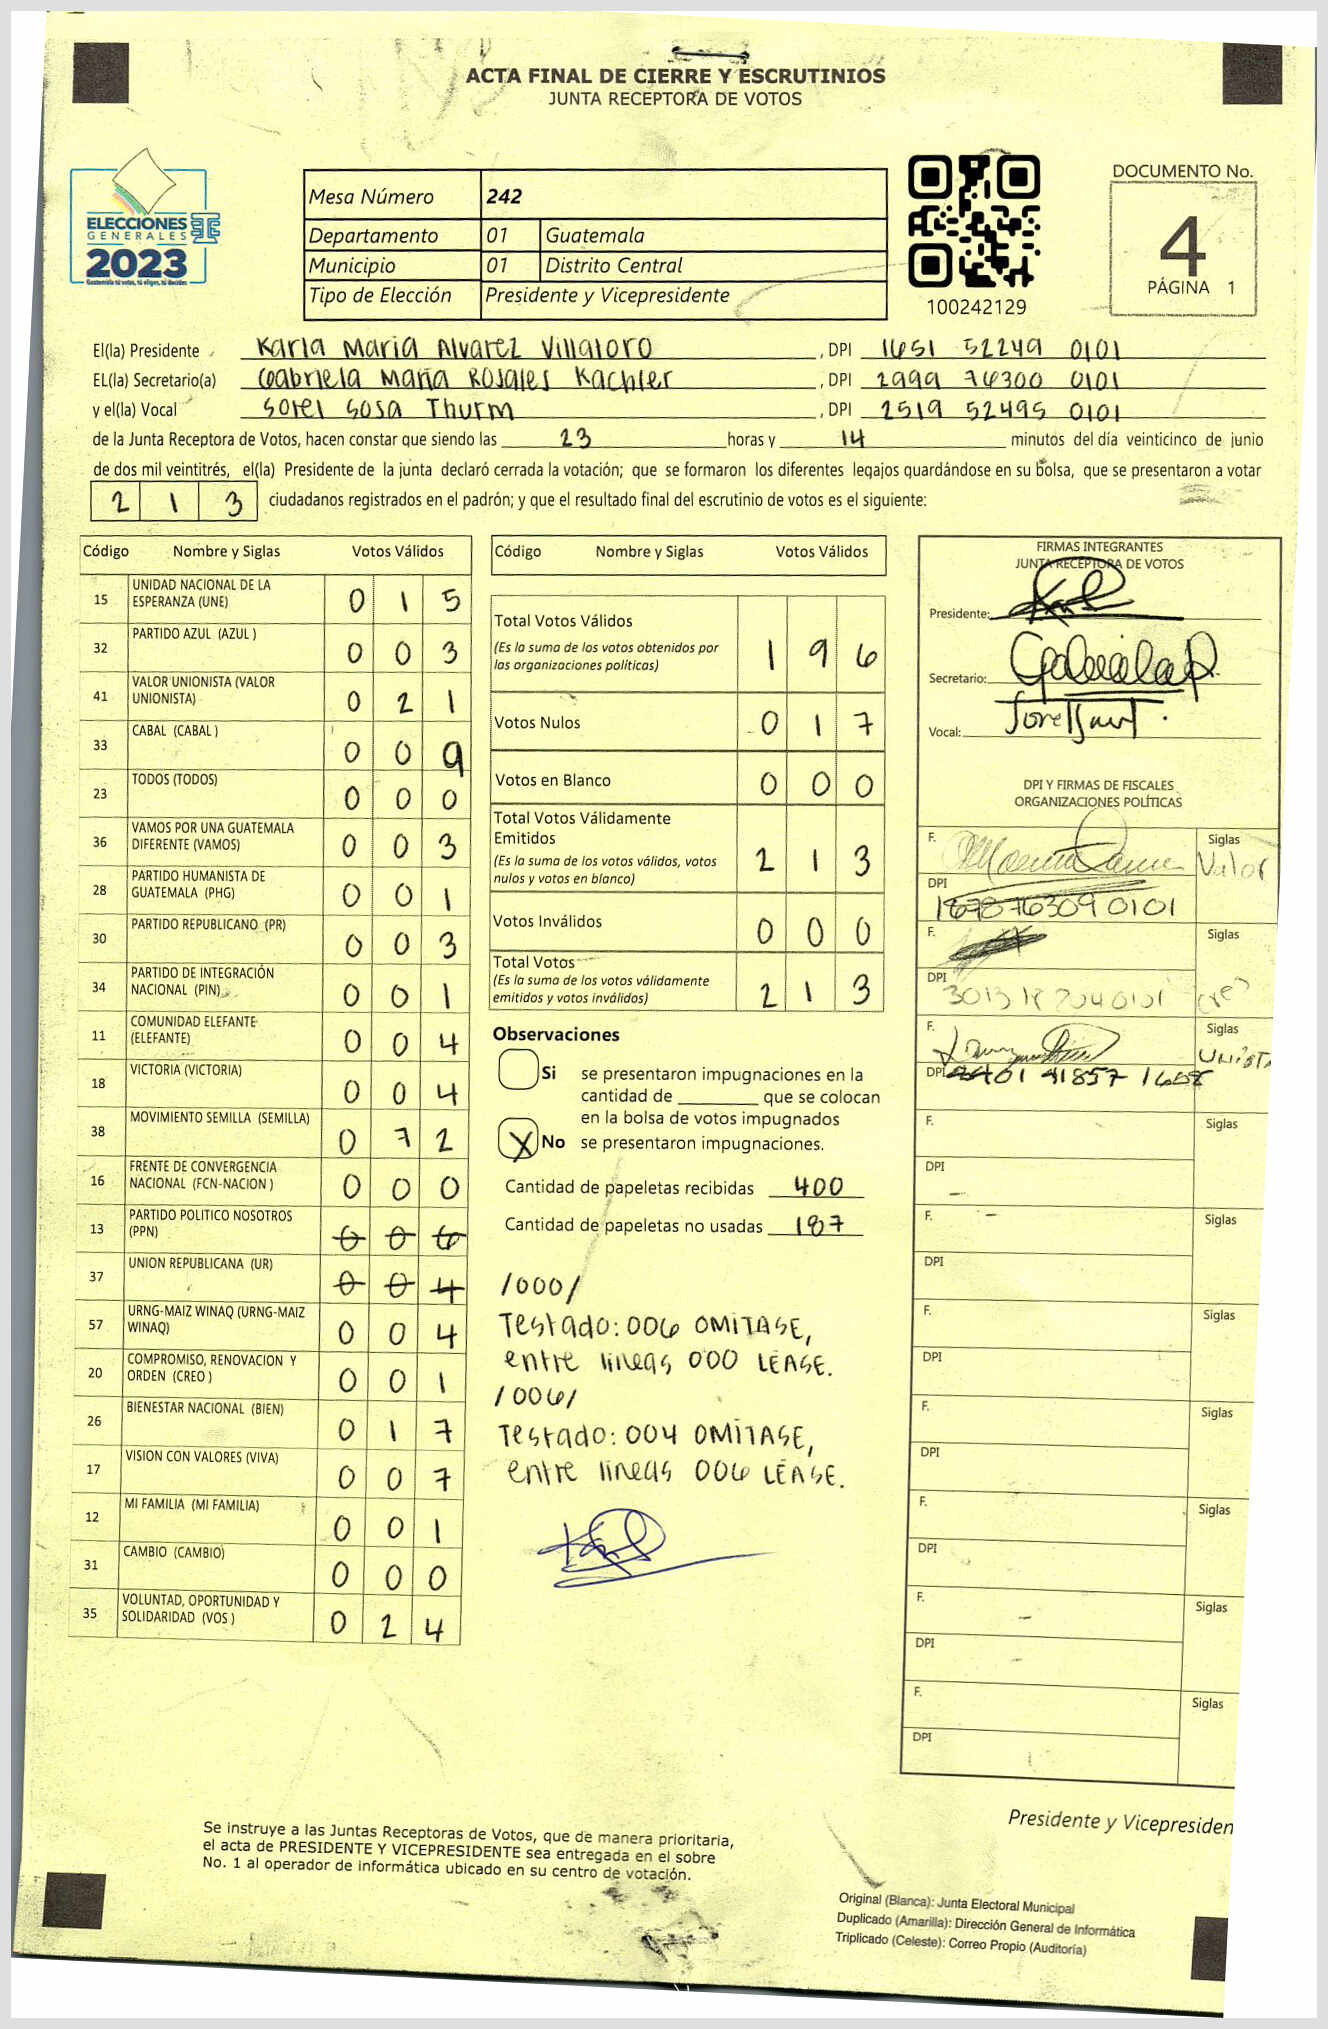 ACTA FINAL DE CIERRE Y ESCRUTINIOS
JUNTA RECEPTORA DE VOTOS
ELECCIONES
GENERALES
2023
Guatemala tú votas, tú eliges, tú decides
Mesa Número 242
Departamento 01 Guatemala
Municipio 01 Distrito Central
Tipo de Elección Presidente y Vicepresidente
100242129
DOCUMENTO No.
4
PÁGINA 1
El(la) Presidente Karla Maria Alvarez Villatoro , DPI 1651 52249 0101
EL(la) Secretario(a) Gabriela Maria Rosales Kachler , DPI 2999 76300 0101
y el(la) Vocal Sorel Sosa Thurm , DPI 2519 52495 0101
de la Junta Receptora de Votos, hacen constar que siendo las 23 horas y 14 minutos del día veinticinco de junio
de dos mil veintitrés, el(la) Presidente de la junta declaró cerrada la votación; que se formaron los diferentes legajos guardándose en su bolsa, que se presentaron a votar
2 1 3 ciudadanos registrados en el padrón; y que el resultado final del escrutinio de votos es el siguiente:
Código Nombre y Siglas Votos Válidos
15 UNIDAD NACIONAL DE LA ESPERANZA (UNE) 0 1 5
32 PARTIDO AZUL (AZUL ) 0 0 3
41 VALOR UNIONISTA (VALOR UNIONISTA) 0 2 1
33 CABAL (CABAL ) 0 0 9
23 TODOS (TODOS) 0 0 0
36 VAMOS POR UNA GUATEMALA DIFERENTE (VAMOS) 0 0 3
28 PARTIDO HUMANISTA DE GUATEMALA (PHG) 0 0 1
30 PARTIDO REPUBLICANO (PR) 0 0 3
34 PARTIDO DE INTEGRACIÓN NACIONAL (PIN) 0 0 1
11 COMUNIDAD ELEFANTE (ELEFANTE) 0 0 4
18 VICTORIA (VICTORIA) 0 0 4
38 MOVIMIENTO SEMILLA (SEMILLA) 0 7 2
16 FRENTE DE CONVERGENCIA NACIONAL (FCN-NACION ) 0 0 0
13 PARTIDO POLITICO NOSOTROS (PPN) 0 0 6
37 UNION REPUBLICANA (UR) 0 0 4
57 URNG-MAIZ WINAQ (URNG-MAIZ WINAQ) 0 0 4
20 COMPROMISO, RENOVACION Y ORDEN (CREO ) 0 0 1
26 BIENESTAR NACIONAL (BIEN) 0 1 7
17 VISION CON VALORES (VIVA) 0 0 7
12 MI FAMILIA (MI FAMILIA) 0 0 1
31 CAMBIO (CAMBIO) 0 0 0
35 VOLUNTAD, OPORTUNIDAD Y SOLIDARIDAD (VOS ) 0 2 4
Código Nombre y Siglas Votos Válidos
Total Votos Válidos
(Es la suma de los votos obtenidos por
las organizaciones políticas) 1 9 6
Votos Nulos 0 1 7
Votos en Blanco 0 0 0
Total Votos Válidamente
Emitidos
(Es la suma de los votos válidos, votos
nulos y votos en blanco) 2 1 3
Votos Inválidos 0 0 0
Total Votos
(Es la suma de los votos válidamente
emitidos y votos inválidos) 2 1 3
Observaciones
Si se presentaron impugnaciones en la
cantidad de ________ que se colocan
en la bolsa de votos impugnados
X No se presentaron impugnaciones.
Cantidad de papeletas recibidas 400
Cantidad de papeletas no usadas 187
/000/
Testado: 006 OMITASE,
entre lineas 000 LEASE.
/006/
Testado: 004 OMITASE,
entre lineas 006 LEASE.
FIRMAS INTEGRANTES
JUNTA RECEPTORA DE VOTOS
Presidente:
Secretario:
Vocal:
DPI Y FIRMAS DE FISCALES
ORGANIZACIONES POLÍTICAS
F. Siglas
Valor
DPI
1878 76309 0101
F. Siglas
DPI
F. Siglas
DPI
F. Siglas
DPI
F. Siglas
DPI
F. Siglas
DPI
F. Siglas
DPI
F. Siglas
DPI
F. Siglas
DPI
F. Siglas
DPI
Presidente y Vicepresiden
Se instruye a las Juntas Receptoras de Votos, que de manera prioritaria,
el acta de PRESIDENTE Y VICEPRESIDENTE sea entregada en el sobre
No. 1 al operador de informática ubicado en su centro de votación.
Original (Blanca): Junta Electoral Municipal
Duplicado (Amarilla): Dirección General de Informática
Triplicado (Celeste): Correo Propio (Auditoría)